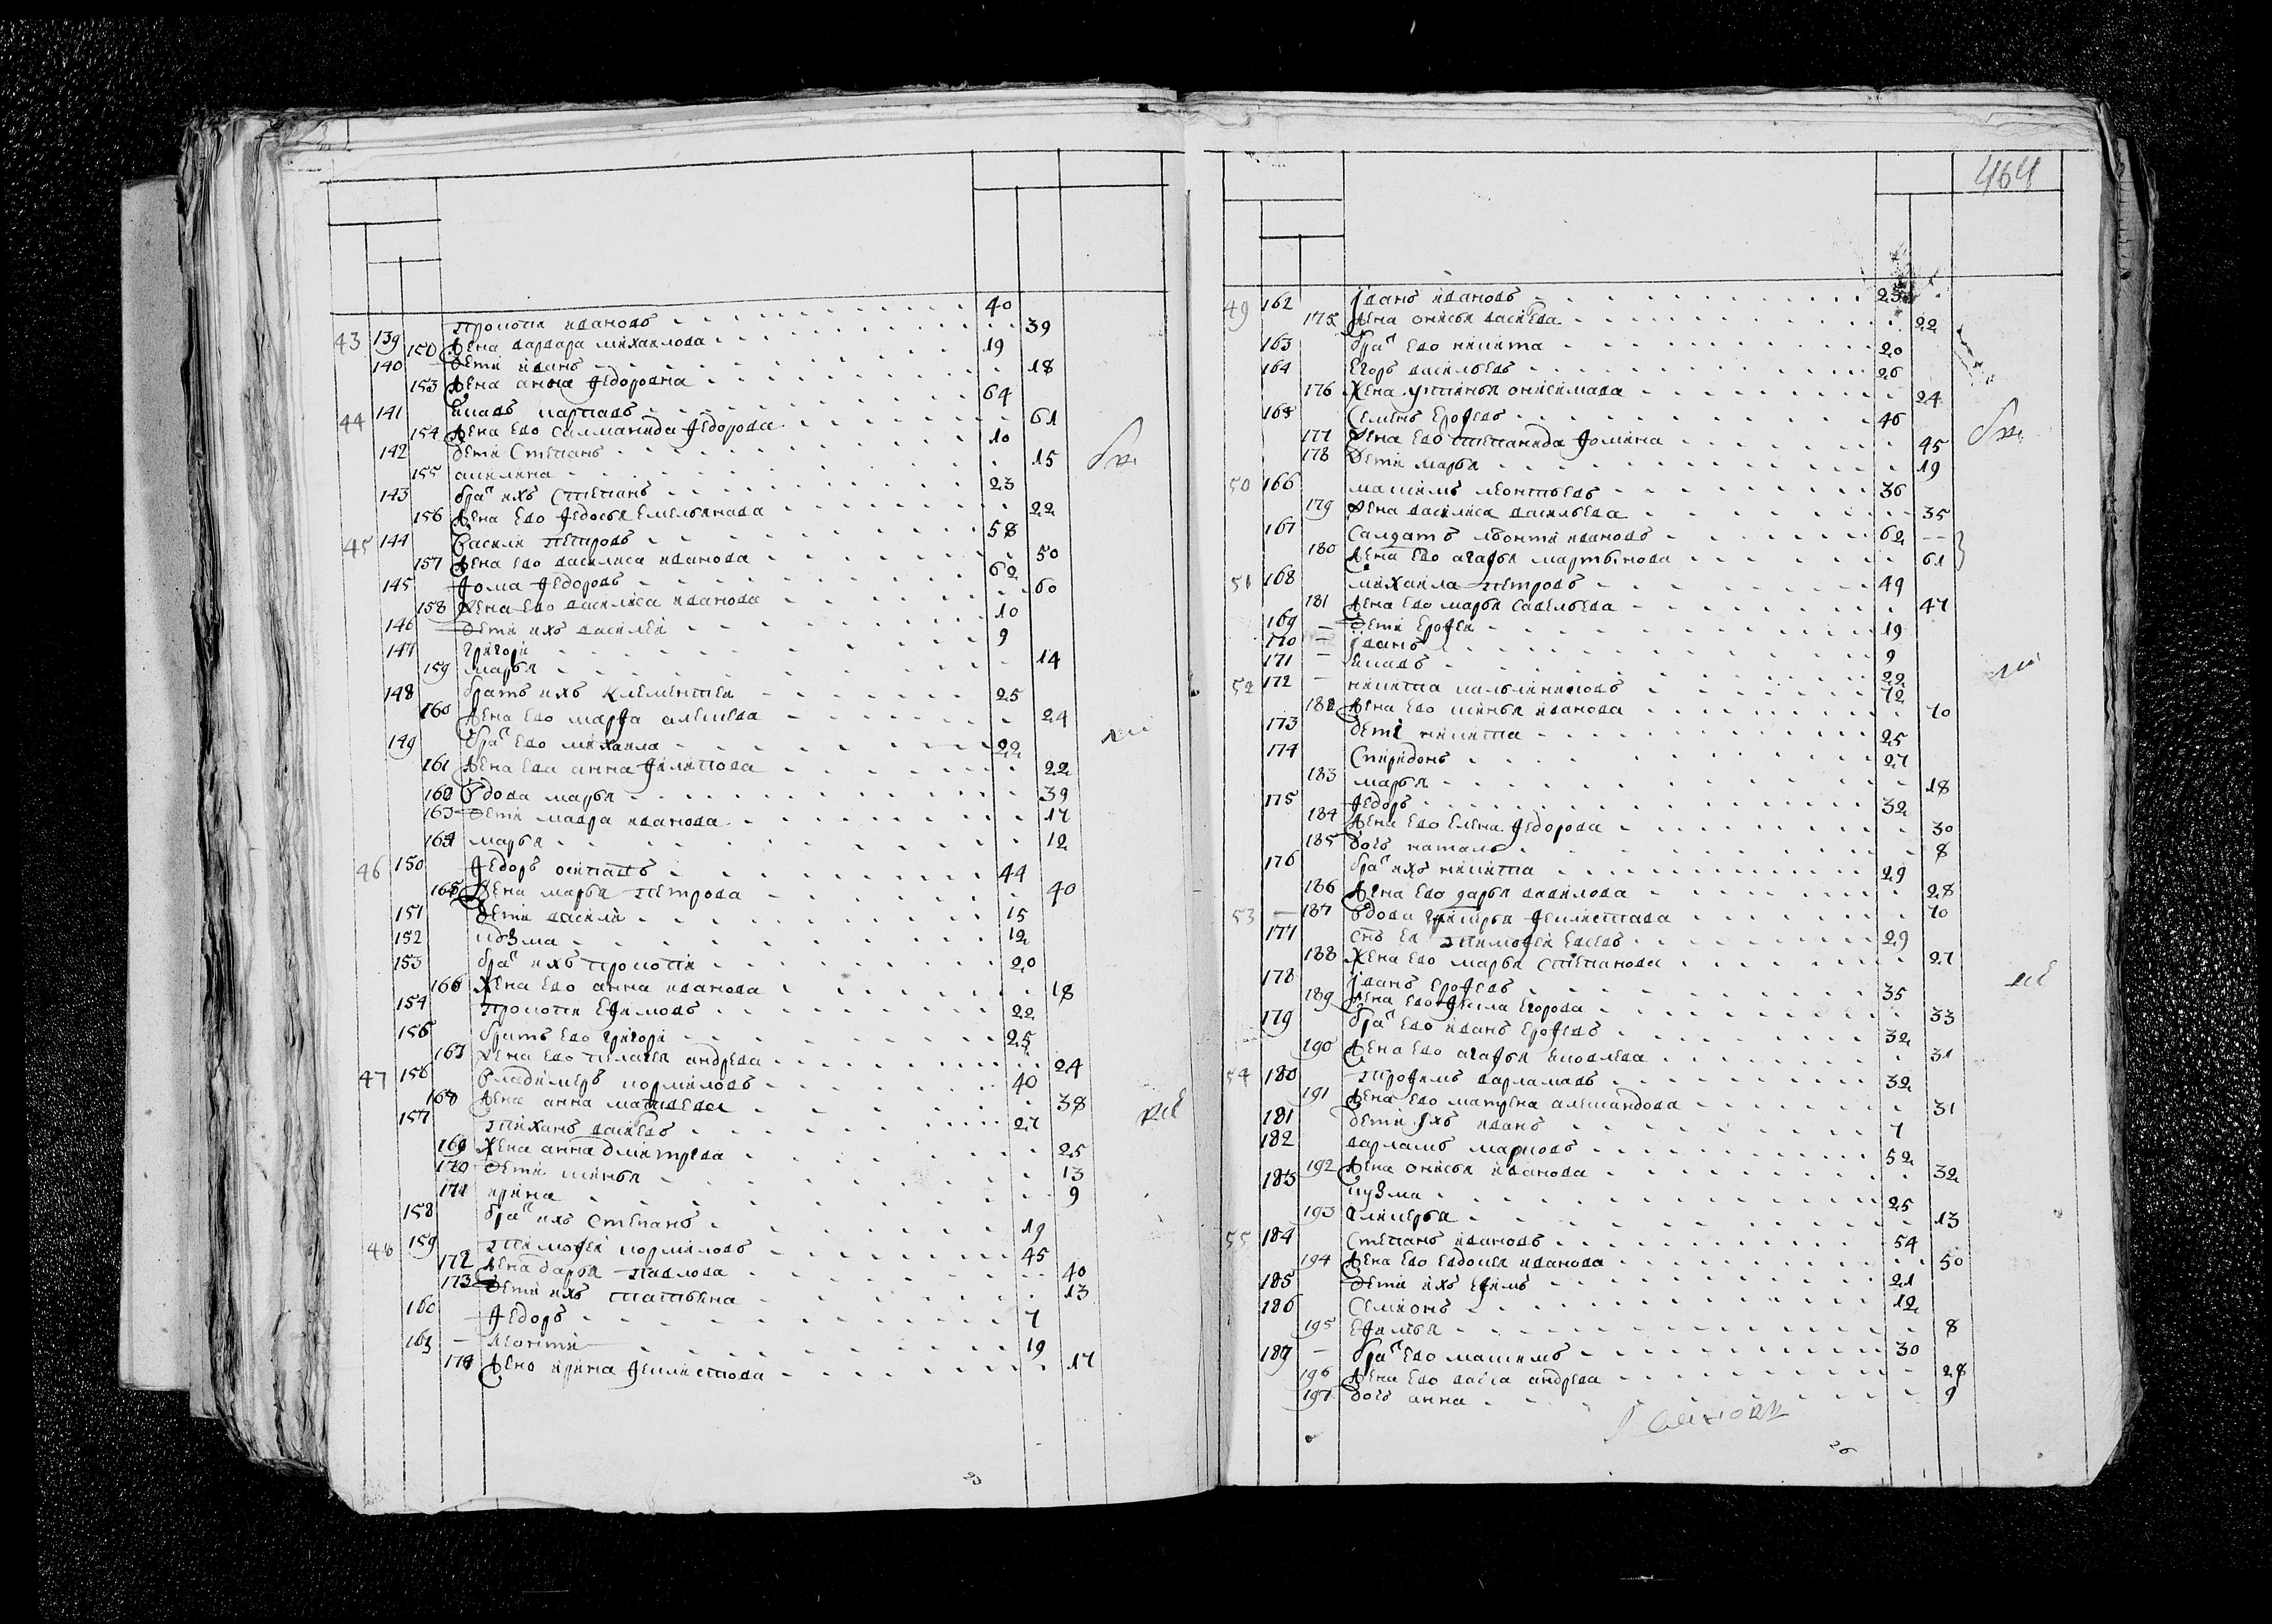 43 139 Прокопи ивановъ 40
150 жена варвара михаилова 39
140 дети иванъ 19
153 жена анна федоровна 18
44 141 карповъ 64
154 жена ево саламанида федорова 61
142 дети Степанъ 10
155 акилина 15
143 бра͏т ихъ Степанъ 23
156 жена ево федосья Емельянова 22
45 144 Василеи петровъ 58
157 жена ево василиса иванова 50
145 фома федоровъ 62
158 жена ево василиса иванова 60
146 дети ихъ василеи 10
147 григори 9
159 марья 14
148 братъ ихъ клементеи 25
160 жена ево марфа алексева 24
149 бра͏т ево михаила 22
161 жена ево анна филипова 22
162 вдова марья 39
163 дети мавра иванова 17
164 марья 12
46 150 федоръ осиповъ 44
165 жена марья петрова 40
151 дети васили 15
152 кузма 12
153 бра͏т ихъ прокопи 20
166 жена ево анна иванова 18
154 прокопи Ефимовъ 22
155 братъ ево григори 25
167 жена ево пелагея андрева 24
47 156 Владимеръ кормиловъ 40
168 жена анна матведева 38
157 тиханъ васиевъ 27
169 жена анна дмитрева 25
170 дети 13
171 ирина 9
158 бра͏т ихъ Степанъ 19
48 159 тимофеи кормиловъ 45
172 жена дарья павлова 40
173 дети ихъ татьяна 13
160 федоръ 7
161 — леонти 19
174 жена ирина феклистова 17
464
49 162 иванъ ивановъ 23
175 жена онисья васиева 22
163 бра͏т ево никита 20
164 Егоръ васильевъ 26
176 жена устинья онисимова 24
165 Семенъ Ерофевъ 46
177 жена ево степанида фомина 45
178 дети марья 19
50 166 максимъ леонтьевъ 36
179 жена василиса васильева 35
167 Салдатъ леонти ивановъ 62
180 жена ево агафья мартынова 61
51 168 михаила петровъ 49
181 жена ево марья савельева 47
169 — дети Ерофеи 19
170 — иванъ 9
171 — 22
52 172 — никита 72
182 жена ево иванова 70
173 дети никита 25
174 Спиридонъ 27
183 марья 18
175 федоръ 32
184 жена ево Елена федорова 30
185 дочь наталья 8
176 бра͏т ихъ никита 29
186 жена ево дарья давилова 28
53 — 187 вдова феклистова 70
177 снъ ея тимофеи Евсевъ 29
188 жена ево марья степанова 27
178 иванъ Ерофевъ 35
189 жена ево фекла Егорова 33
179 бра͏т ево иванъ Ерофевъ 32
190 жена ево агафья яковлева 31
54 180 трофимъ варламовъ 32
191 жена ево матрена александрова 31
181 дети ихъ иванъ 7
182 варламъ марковъ 52
192 жена онисья иванова 32
183 кузма 25
193 гликерья 13
55 184 Степанъ ивановъ 54
194 жена ево евдокея иванова 50
185 дети ихъ ефимъ 21
186 Семионъ 12
195 Ефимья 8
187 — бра͏т ево максимъ 30
196 жена ево васса андрева 28
197 дочь анна 9
26